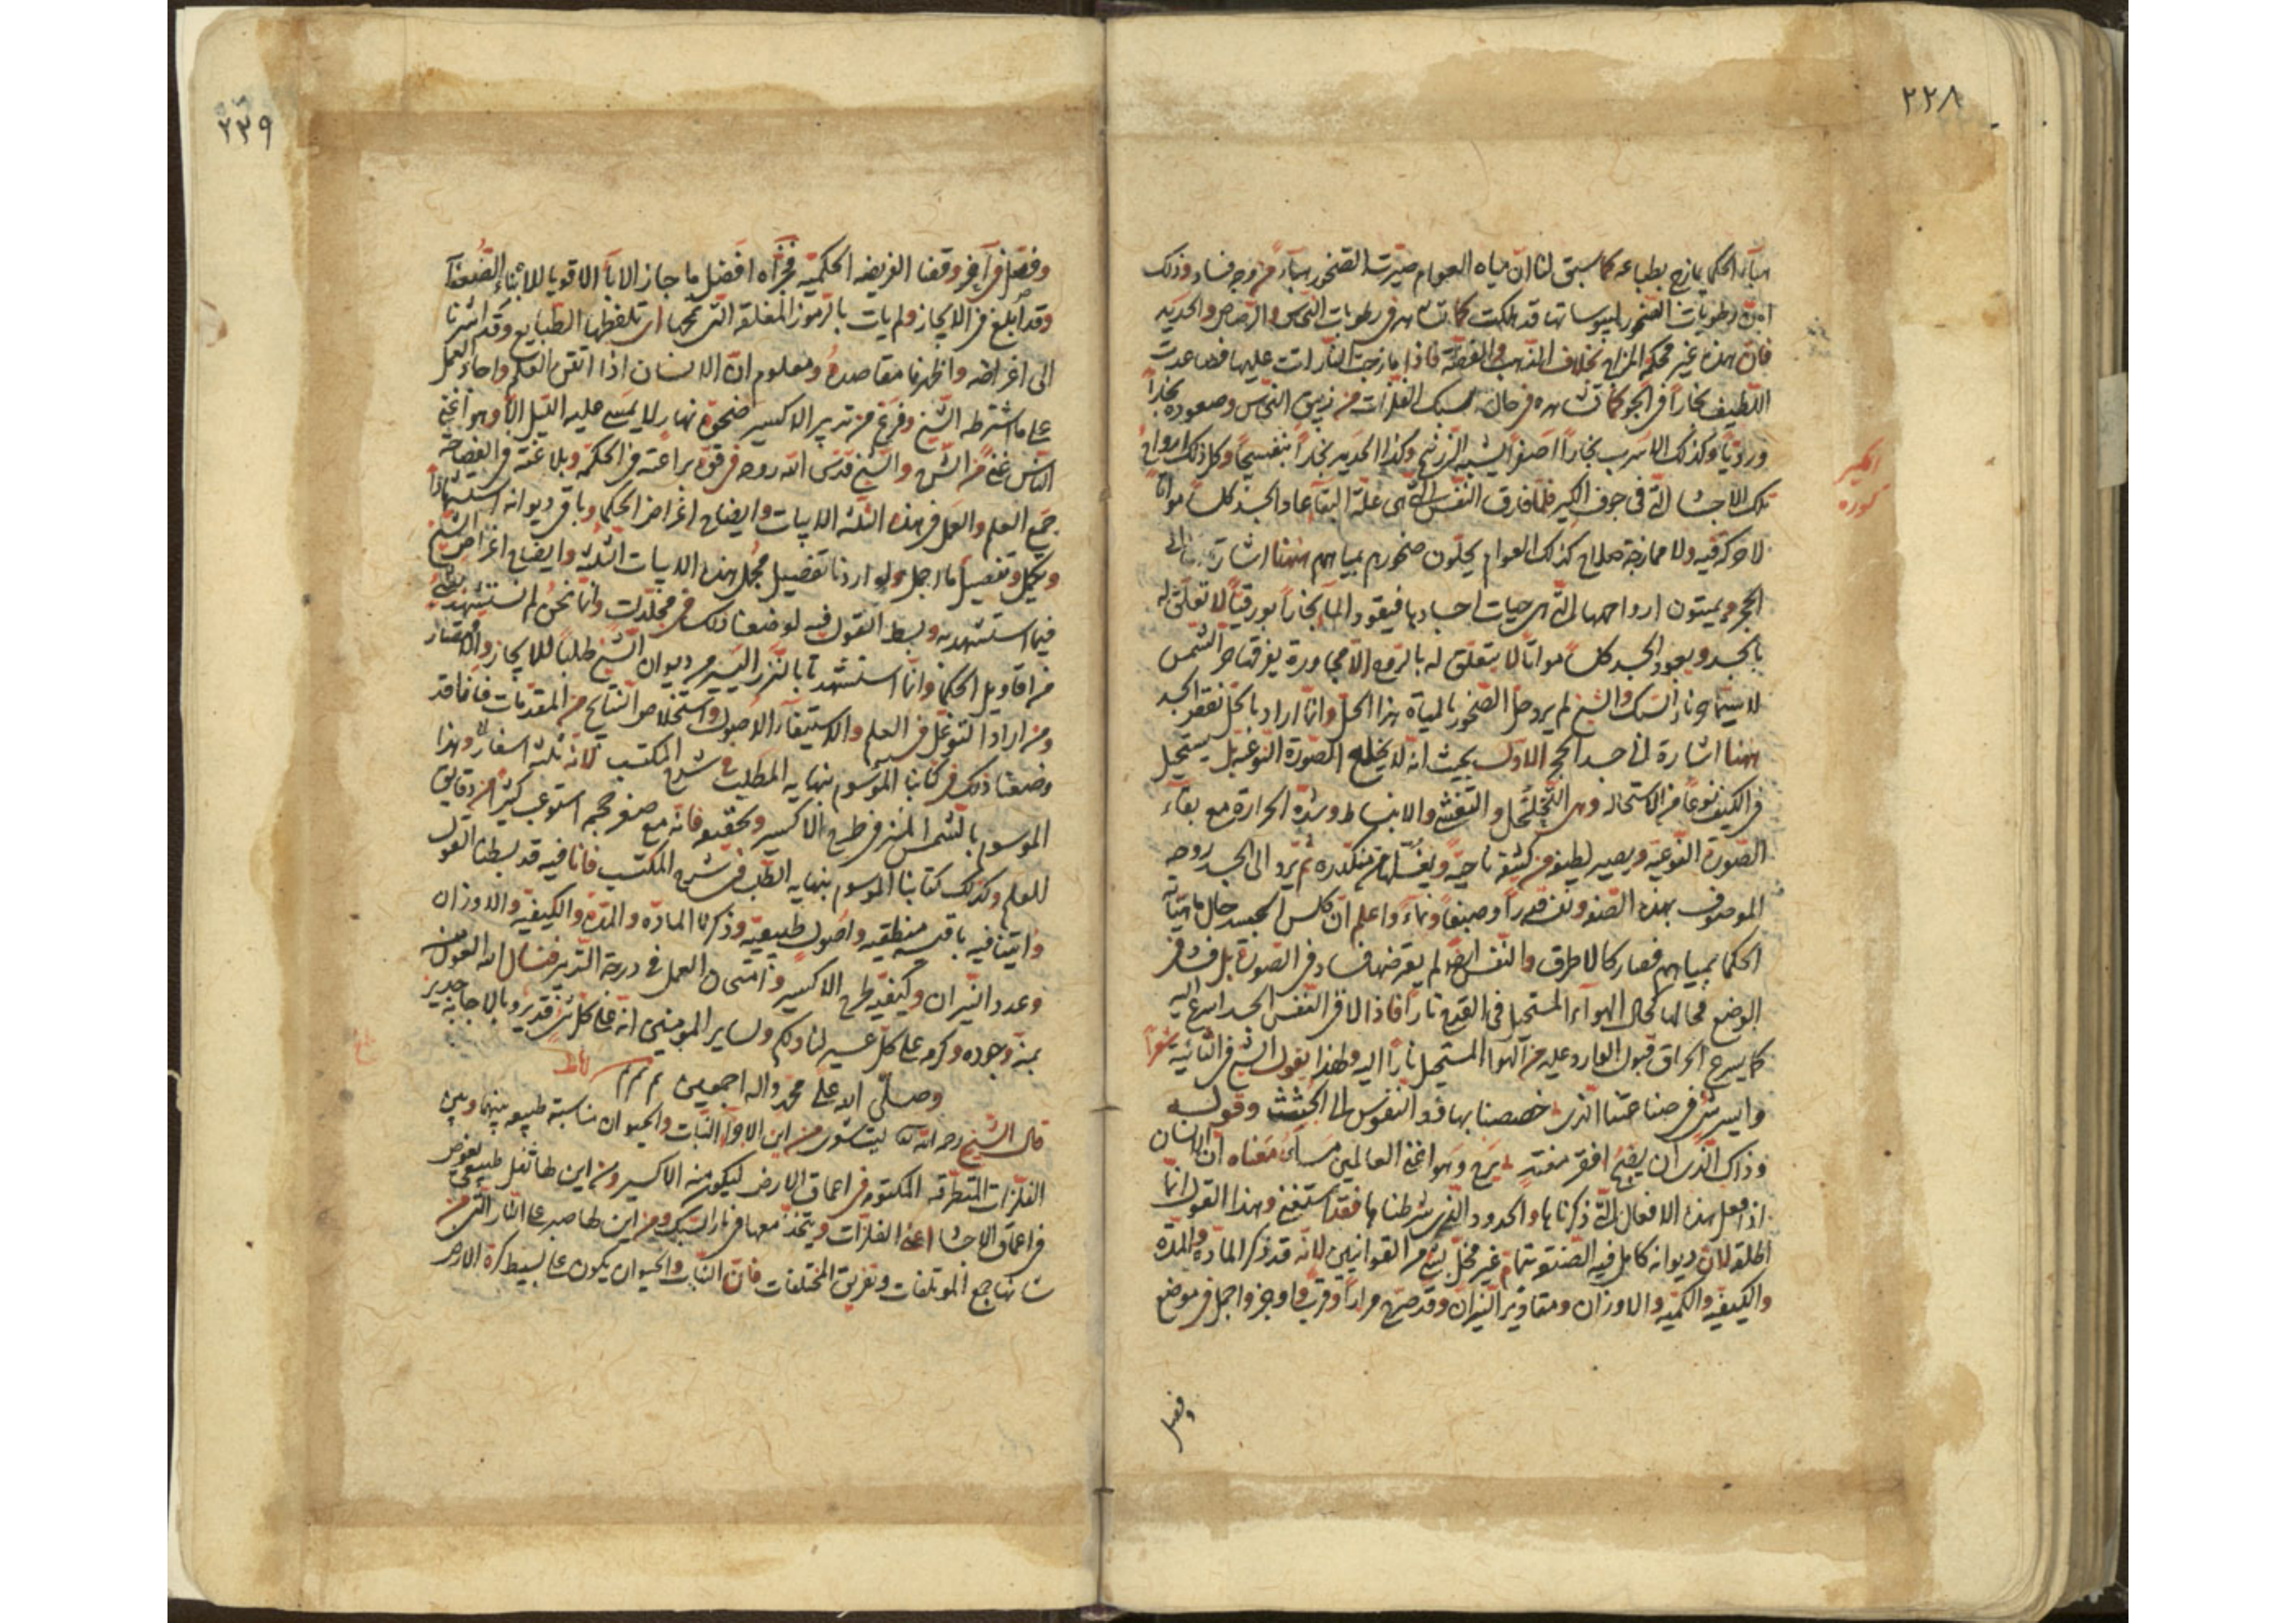 ٢٢٨
بماء الحكما يمازج بطباعه كما سبق لنا ان مياه العوام صيّرت الصخور هباء من وجه فساد وذلك
ان رطوبات الصخور ليبوساتها قد هلكت كما تشاهد فى رطوبات النحاس والرصاص والحديد
فان هذه غير محكمة المزاج بخلاف الذهب والفضة فاذا مازجت النار اتت عليها فصاعدت
اللطيف بخاراً فى الجو كما تشاهده فى حال سبك الفلزات من زيبق النحاس وصعوده بخاراً
وردياً وكذلك الاسرب بخاراً اصفراً يشبه الزرنيخ وكذا الحديد بخاراً بنفسجياً وكل ذلك ارواح
تلك الاجساد التى فى جوف الكير فلما فارق النفس التى هى علة البقاء عاد الجسد كلساً مواتاً
لا حركة فيه ولا ممازجة صلاح كذلك العوام يحلّون صخورهم بمياههم ههنا اشارة الى
الحجر ويميتون ارواحها التى هى حيات اجسادها فيعود الماء بخاراً بورقياً لا تعلق له
بالجسد ويعود الجسد كلساً مواتاً لا يتعلق له بالروح الا مجاورة يفرقها حر الشمس
لا سيما نار السبك والشيخ لم يرد حل الصخور بالمياه هذا الحل وانما اراد بالحل تفقر الجسد
ههنا اشارة الى جسد الحجر الاول بحيث انه لا يخلع الصورة النوعية بل يستحيل
فى الكيف نوعاً من الاستحالة وهى التخلخل والتفشى والانبساط وشدة الحرارة مع بقاء
الصورة النوعية ويصير لطيفه من كثيفه ناحية ويغسلها من متكدره ثم يرد الى الجسد روحه
الموصوف بهذه الصفة ونفسه قدراً وصبغاً ونماء واعلم ان كلس الجسد حال ماهيته
الحكما بمياههم فصار كالاطرق والنفس ايضاً لم يعرضها فساد فى الصورة بل فساد فى
الوضع فحالها كحال الهواء المستحيل فى القدح ناراً فاذا لاقى النفس الجسد اسرع اليه
كما يسرع الحراق قبول الوارد عليه من الهوا المستحيل ناراً اليه ولهذا يقول الشيخ فى الثانية شعراً
وايسر شى فى صناعتنا الذى خصصنا بها قود النفوس الى الجثث وقوله
وذاك الذى ان يضح افقر مفتد يرح وهو اغنى العالمين مسآ معناه ان الانسان
اذا فعل هذه الافعال التى ذكرناها والحدود الذى شرطناها فقد استغنى وهذا القول انما
اطلقه لان ديوانه كامل فيه الصنعة بتمام غير مخل بشئ من القوانين لانه قد ذكر المادة والمدة
والكيفية والكمية والاوزان ومقادير النيران وقد صرح مراراً وقرب واوجز واجمل فى موضع
وفصل
اكير
كوره
٢٣٩
وفصل فى آخر وقفنا الفريضه الحكميّه فجزاه افضل ما جاز الابآء الاقويا للابناء الضعفآ
وقد ابلغ فى الايجاز ولم يات بالرموز المغلقه التى تمجها اى تلفظها الطبايع وقد اشرنا
الى اغراضه واظهرنا مقاصده ومعلوم ان الانسان اذا اتقن العلم واحاد العمل
على ما اشترطه الشيخ وفرغ من تدبير الاكسير ضحوة نهار لا يمسى عليه الليل الا وهو اغنى
الناس غنى من الشى والشيخ قدس الله روحه فى قوة براعته فى الحكمة وبلاغته فى الفصاحة
جمع العلم والعمل فى هذه الثلثه الابيات وايضاح اغراض الحكما وباقى ديوانه استشهاداً
وتكميل وتفصيل ما اجمل ولو اردنا تفصيل مجمل هذه الابيات الثلثه وايضاح اغراض الشيخ
فيما استشهد به وبسط القول فيه لوضعنا ذلك فى مجلدات وانما نحن لم نستشهد بشئ
من اقاويل الحكما وانما استشهدنا بالنزر اليسير من ديوان الشيخ طلباً للايجاز والاختصار
ومن اراد التوغل فى العلم والاستيفآء الاصول واستخلاص النتايج من المقدمات فاننا قد
وضعنا ذلك فى كتابنا الموسوم بنهايه المطلب فى شرح المكتسب لانه ثلثه اسفار وهذا
الموسوم بالشمس المنير فى طرح الاكسير وتحقيقه فانه مع صغر حجمه استوعب كثيراً من دقايق
للعلم وكذلك كتابنا الموسوم بنهايه الطلب فى شرح المكتسب فانا فيه قد بسطنا القول
واتينا فيه باقيسه منطقيه واصول طبيعيّه وذكرنا المادّه والمدّة والكيفيّه والاوزان
وعدد النيران وكيفيّه طرح الاكسير وامتحان العمل فى درجة التدبير فنسال الله العون منه
بمنه وجوده وكرمه على كل عسير لنا ولكم ولساير المومنين انه على كل شئ قدير وبالاجابة جدير
وصلى الله على محمد واله اجمعين تم تم تم
قال الشيخ رحمه الله ليت شعرى من اين الاجزآء النبات والحيوان مناسبة طبيعيه بينها وبين
الفلزات المتطرقه المكتومه فى اعماق الارض ليكون منه الاكسير ومن اين لها ثفل طبيعى يغوص
فى اعماق الاجساد اعنى الفلزات ويتحد معها فى نار السبك ومن اين لها صبر على النار التى من
شانها جمع المؤتلفات وتفريق المختلفات فان النبات والحيوان يكون على بسيط كرة الارض